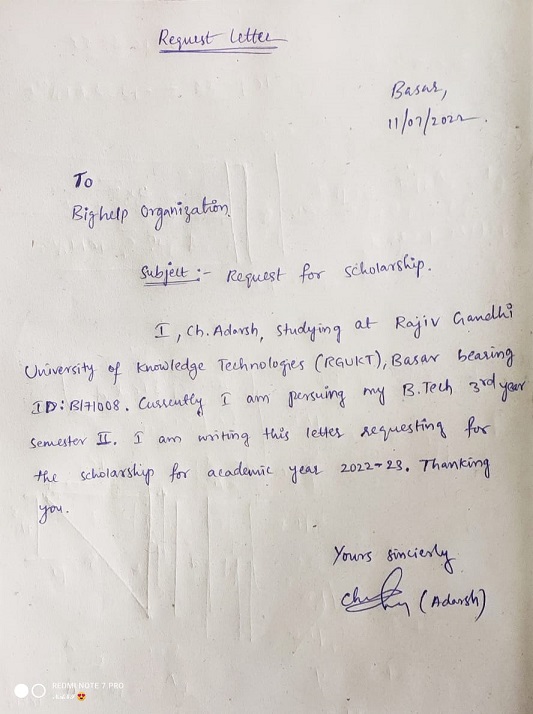 Request Letter
Basar,
11/07/2022.
To
Bighelp Organization.
Subject :- Request for scholarship.
I, Ch. Adarsh, studying at Rajiv Gandhi
University of Knowledge Technologies (RGUKT), Basar bearing
ID: B171008. Currently I am persuing my B.Tech 3rd year
semester II. I am writing this letter requesting for
the scholarship for academic year 2022-23. Thanking
you.
Yours sincierly
(Adarsh)
REDMI NOTE 7 PRO